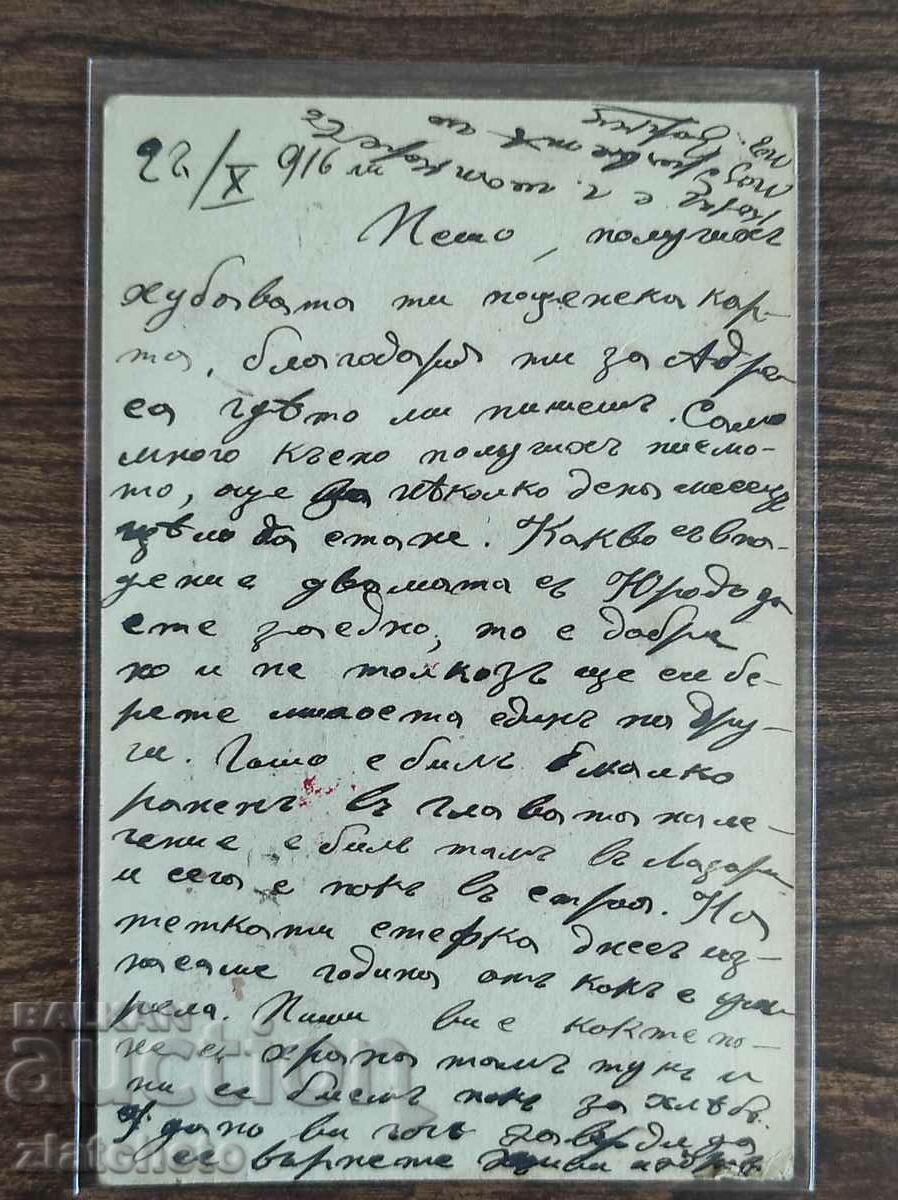 22/X 916
Пешо, получихъ
хубавата ти пощенска кар-
та, благодаря ти за Адре
са гдѣто ми пишешъ. Само
много късно получихъ писмо-
то, още нѣколко дена месецъ
цѣлъ да стане. Какво съвпа-
дение двамата съ Юрдо да
сте заедно, то е добре
но и не толкозъ ще си бе-
рете милоста единъ на дру-
ги. Гошо е билъ малко
раненъ въ главата на ле-
чение е билъ тамъ въ Лазаре
и сега е пакъ въ строя. На
тетка ти Стефка днесъ из-
насаме година отъ какъ е ум
рела. Пиши ми как те по-
не съ храна тамъ тукъ и
ни се биемъ пакъ за хлѣбъ.
дано ви
се върнете живи и здрави
BALKAN
auction
zlatcheto